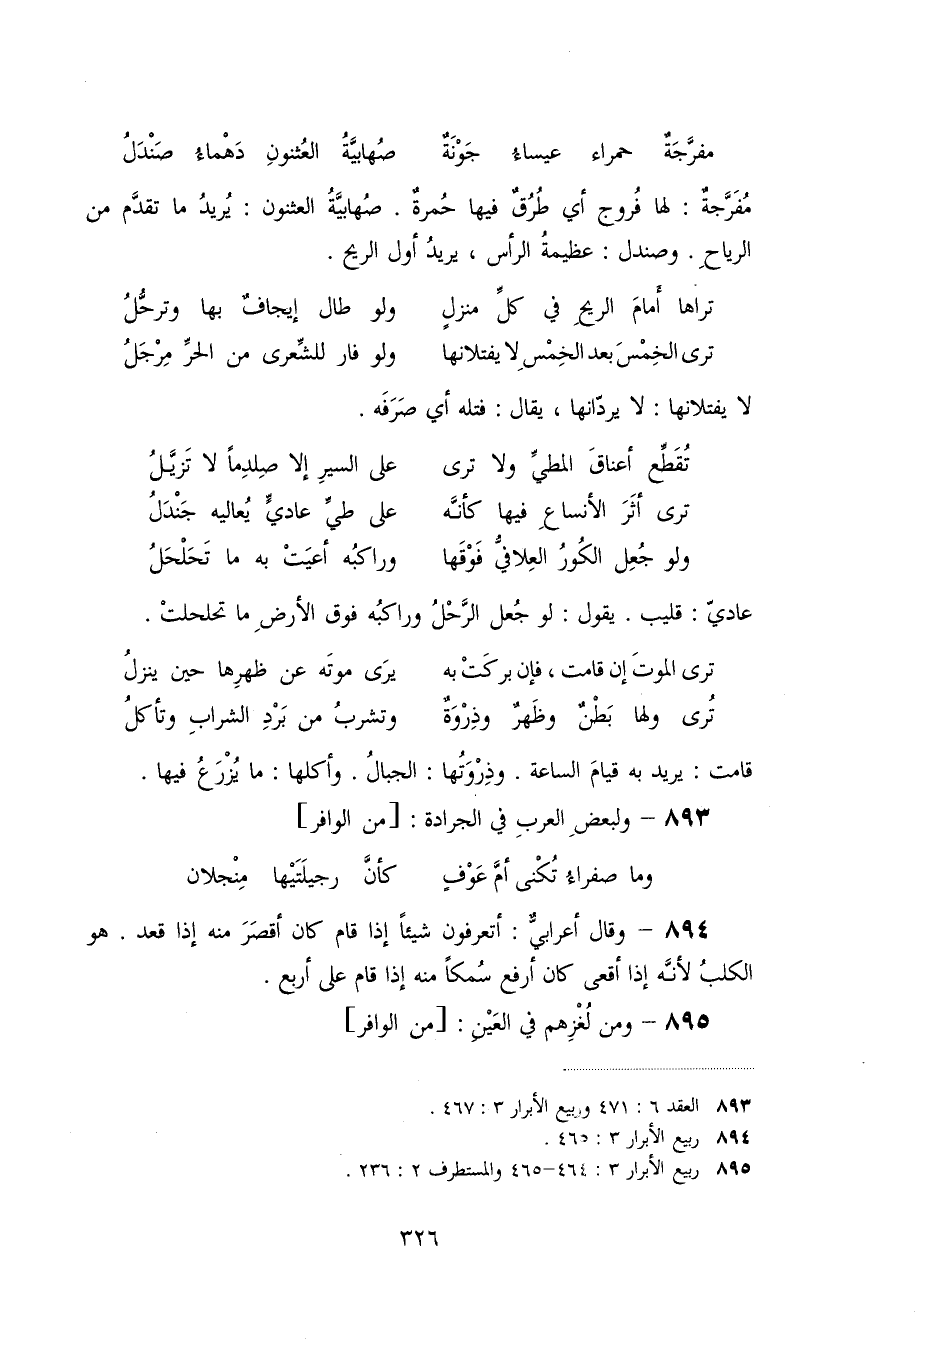 مفرَّجَةٌ حمراء عيساءُ جَوْنَةٌ صُهابيَّةُ العُثنونِ دَهْماءُ صَنْدَلُ
مُفَرَّجةٌ : لها فُروج أي طُرُقٌ فيها حُمرةٌ . صُهابيَّةُ العثنون : يُريدُ ما تقدَّم من
الرياحِ . وصندل : عظيمةُ الرأس ، يريدُ أول الريح .
تراها أَمامَ الريحِ في كلِّ منزلٍ ولو طال إيجافٌ بها وترحُّلُ
ترى الخِمْسَ بعد الخِمْسِ لا يفتلانها ولو فار للشِّعرى من الحرِّ مِرْجَلُ
لا يفتلانها : لا يردّانها ، يقال : فتله أي صَرَفَه .
تُقَطِّع أعناقَ المطيِّ ولا ترى على السيرِ إلا صِلِدِماً لا تَزيَّلُ
ترى أثَرَ الأنساعِ فيها كأنَّه على طيِّ عاديٍّ يُعاليه جَنْدَلُ
ولو جُعِل الكُورُ العِلافيُّ فَوْقَها وراكبُه أعيَتْ به ما تَحَلْحَلُ
عاديّ : قليب . يقول : لو جُعل الرَّحْلُ وراكبُه فوق الأرضِ ما تحلحلتْ .
ترى الموتَ إن قامت ، فإن بركَتْ به يرَى موتَه عن ظهرِها حين ينزلُ
تُرى ولها بَطْنٌ وظَهرٌ وذِرْوَةٌ وتشربُ من بَرْدِ الشرابِ وتأكلُ
قامت : يريد به قيامَ الساعة . وذِرْوَتُها : الجبالُ . وأكلها : ما يُزْرَعُ فيها .
٨٩٣ – ولبعضِ العربِ في الجرادة : [من الوافر]
وما صفراءُ تُكْنى أمَّ عَوْفٍ كأنَّ رجيلَتَيْها مِنْجلان
٨٩٤ – وقال أعرابيٌّ : أتعرفون شيئاً إذا قام كان أقصَرَ منه إذا قعد . هو
الكلبُ لأنَّه إذا أقعى كان أرفع سُمكاً منه إذا قام على أربع .
٨٩٥ – ومن لُغْزِهم في العَيْنِ : [من الوافر]
٨٩٣ العقد ٦ : ٤٧١ وربيع الأبرار ٣ : ٤٦٧ .
٨٩٤ ربيع الأبرار ٣ : ٤٦٥ .
٨٩٥ ربيع الأبرار ٣ : ٤٦٤–٤٦٥ والمستطرف ٢ : ٢٣٦ .
٣٢٦